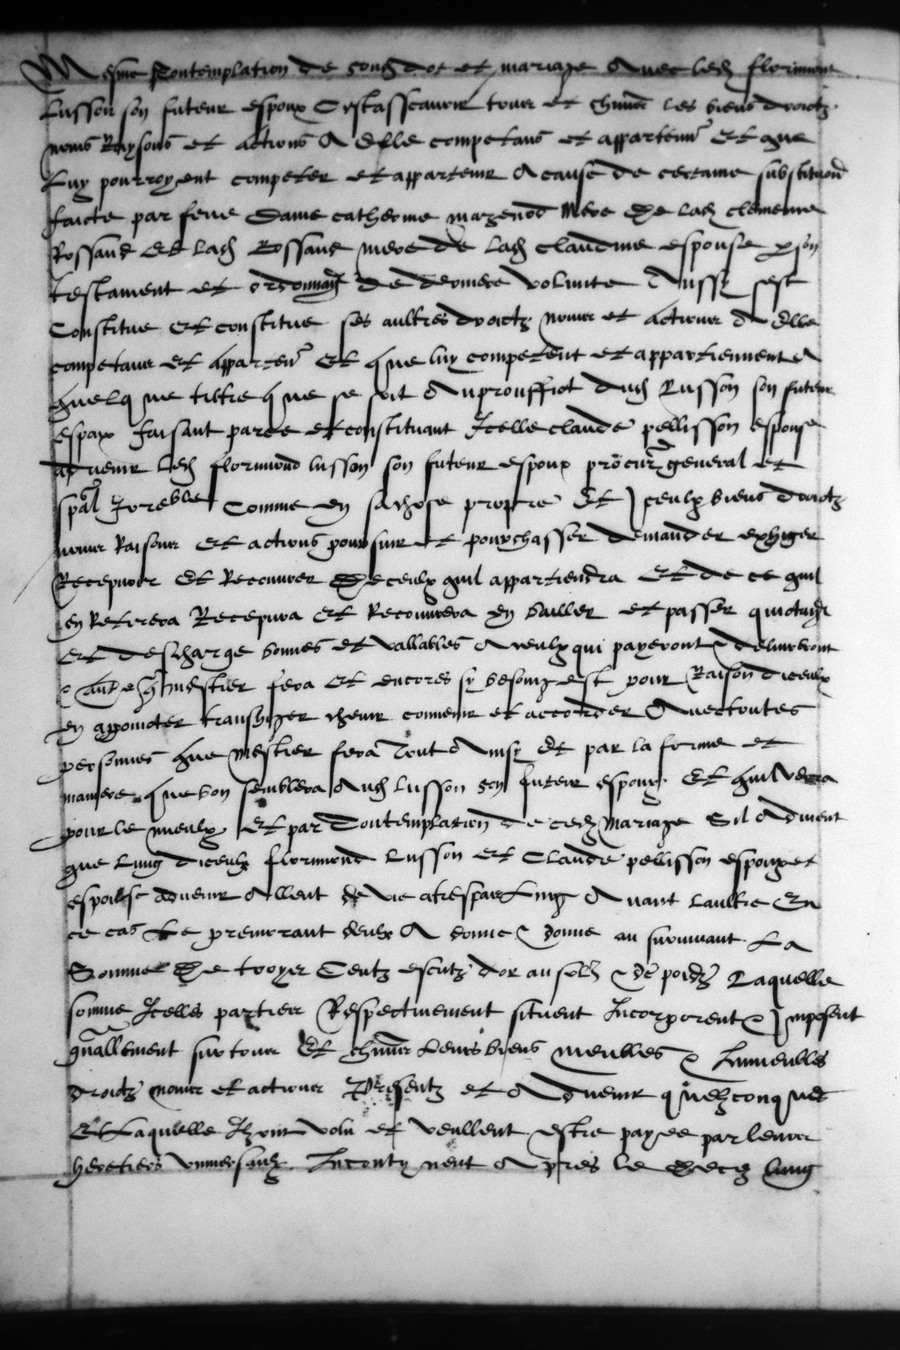 Mesme contemplation de sond dot et mariage Avec led florimond
Lusson son futeur espoux Cestasscavoir tous et chūns les biens droictz
noms Raysons et actions A Elle competans et appartenās Et que
Luy pourroyent competer et appartenir A cause de certaine substituon̄
faicte par feue Dame catherine mazenod Mere De lad clemence
Rossand Et lad Rossand mere de lad claudine espouse p son
testament et ordonnance de derniere volunte Aussy sest
Constitue Et constitue ses aultres droictz noms et actions A Elle
competans et appartenās Et que luy competent et appartiennent A
quelque tiltre que se soit Au prouffict dud Lusson son futeur
espoux faisant partie et constituant Icelle claude pellisson espouse
advenir led florimond lusson son futeur espoux procur general et
spāl Irrevocable Comme en sa chose propre Et Iceulx biens droictz
noms Raisons Et actions poursuir et pourchasser demander exhiger
Recepvoir Et Recouvrer De ceulx quil appartiendra Et de ce quil
en Retirera Recepvra Et Recouvrera en bailler et passer quictance
Et descharge bonnes et vallables A ceulx qui payeront & deslivreront
& aultre mestier fera Et encores sy besoing est pour Raison diceulx
en appoincter transiger chevir convenir et accorder Avec toutes
personnes que mestier sera Tout Ainsy Et par la forme et
maniere que bon semblera Aud Lusson son futeur espoux Et quil verra
pour le mieulx Et par Contemplation de ced Mariage Sil Advient
que Lung diceulx florimond Lusson Et Claude pellisson espoux et
espouse advenir Allent de vie a trespas Lung Avant Laultre En
ce cas Le premorant deulx A donne & donne au survivant La
Somme De troys Centz escutz dor au soleil & de poidz Laquelle
somme Icelles parties Respectivement situent Incorporent & Imposent
gn̄allement sur tous Et chūns Leurs biens meubles & Inmeubles
droictz noms et actions Presentz et Advenir quelzconques
Et Laquelle Ilz ont volu et veullent estre payee par leurs
heretiers universaulx Incontynent Apres le deces Lung